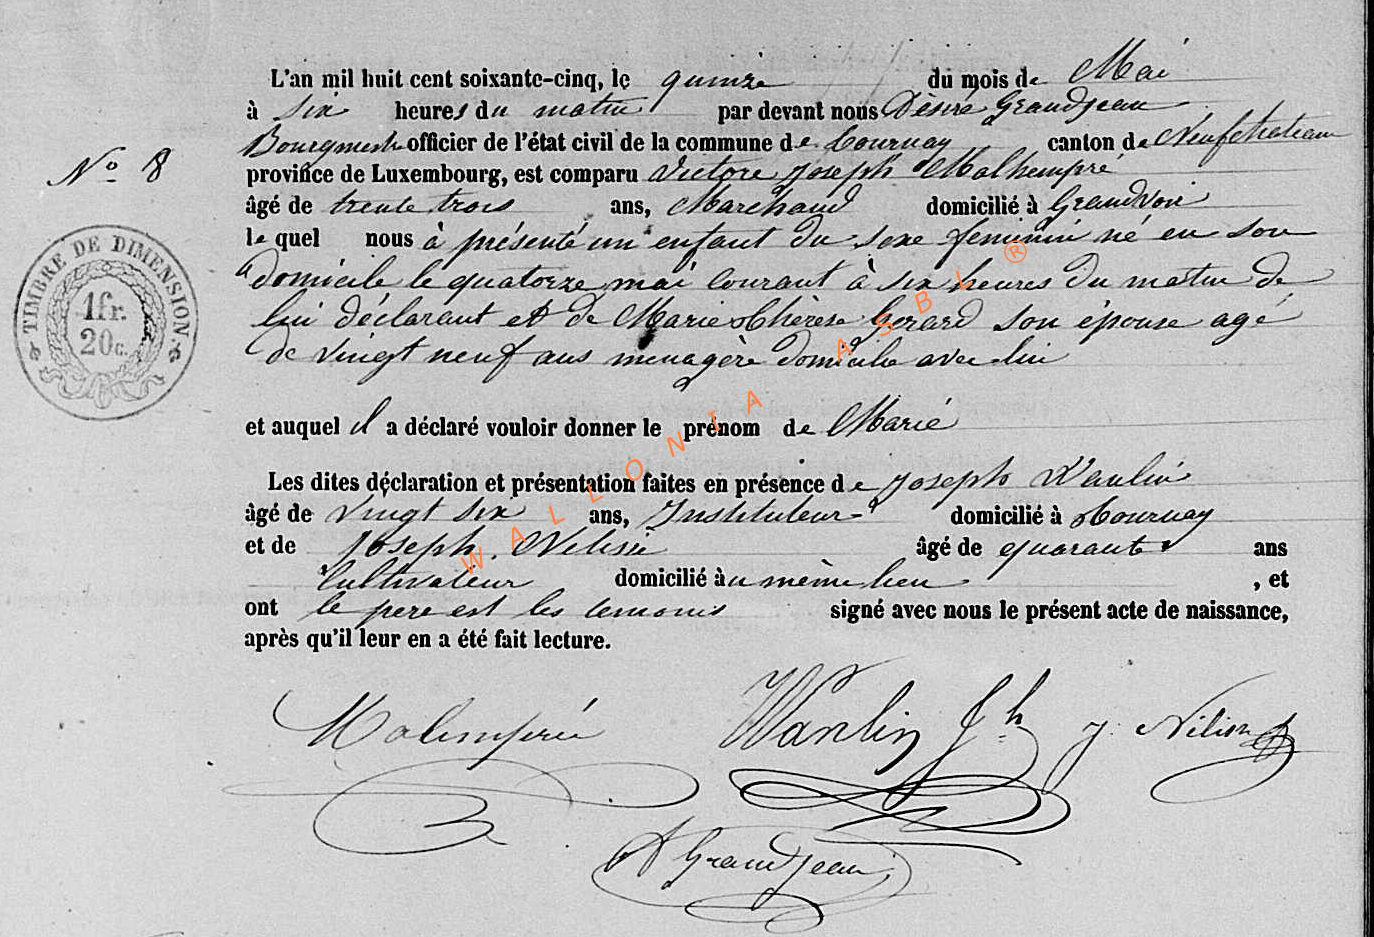 L'an mil huit cent soixante-cinq, le quinze du mois de Mai
à six heures du matin par devant nous Désiré Grandjean
Bourgmestre officier de l'état civil de la commune de Tournay canton de Neufchateau
N° 8
province de Luxembourg, est comparu Victore Joseph Malhempré
âgé de trente trois ans, Marchand domicilié à Grandvoir
le quel nous à présenté un enfant du sexe feminin né en son
domicile le quatorze mai courant à six heures du matin de
lui déclarant et de Marie Thérèse Gerard son épouse agé
de vingt neuf ans menagère domicilié avec lui
TIMBRE DE DIMENSION
1 fr.
20 c.
et auquel il a déclaré vouloir donner le prénom de Marie
Les dites déclaration et présentation faites en présence de Joseph Wanlin
âgé de vingt six ans, Instituteur domicilié à Tournay
et de Joseph Nelisse âgé de quarante ans
Cultivateur domicilié au même lieu , et
ont le pere est les temoins signé avec nous le présent acte de naissance,
après qu'il leur en a été fait lecture.
WALLONIA ASBL ®
Malempré Wanlin Jh J. Nelisse
D Grandjean